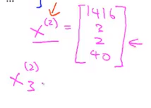 x^(2) = [1416
3
2
40] ←
x_3^(2)